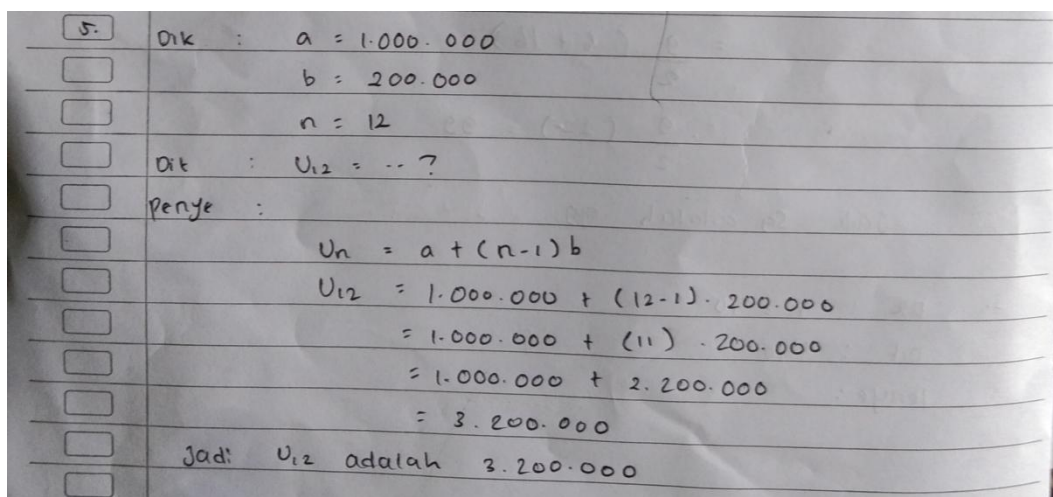 5. Dik : a = 1.000.000
b = 200.000
n = 12
Dit : U12 = -- ?
Penye :
Un = a + (n-1) b
U12 = 1.000.000 + (12-1). 200.000
= 1.000.000 + (11) . 200.000
= 1.000.000 + 2.200.000
= 3.200.000
Jadi U12 adalah 3.200.000